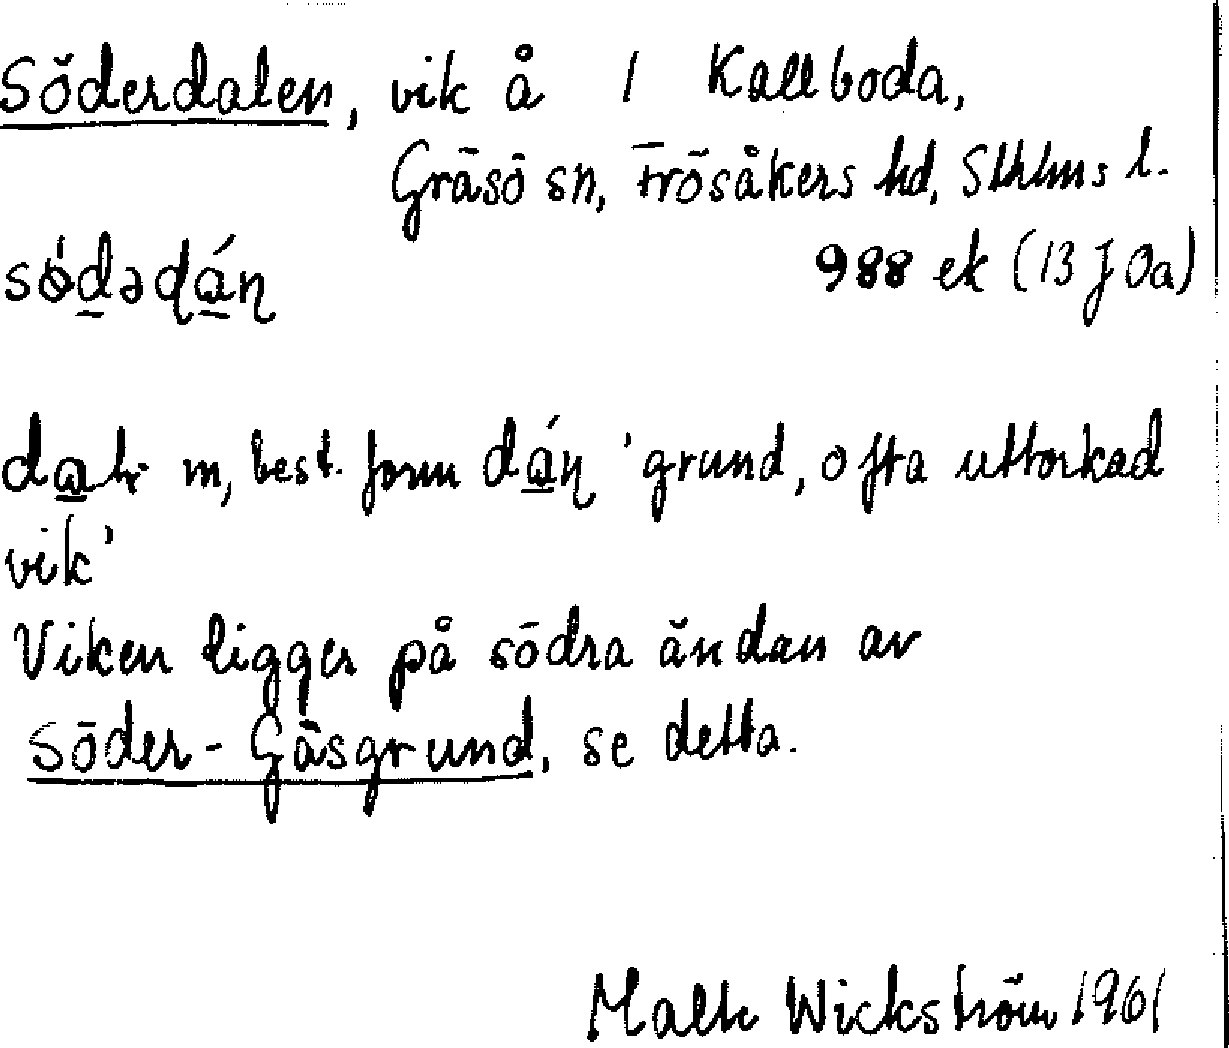 Söderdalen, vik å 1 Kallboda,
Gräsö sn, Frösåkers hd, Sthlms l.
sǿdədáɳ 988 ek (13 J 0a)
daḷ m, best. form dáɳ 'grund, ofta uttorkad
vik'
Viken ligger på södra ändan av
Söder-Gåsgrund, se detta.
Malte Wickström 1961